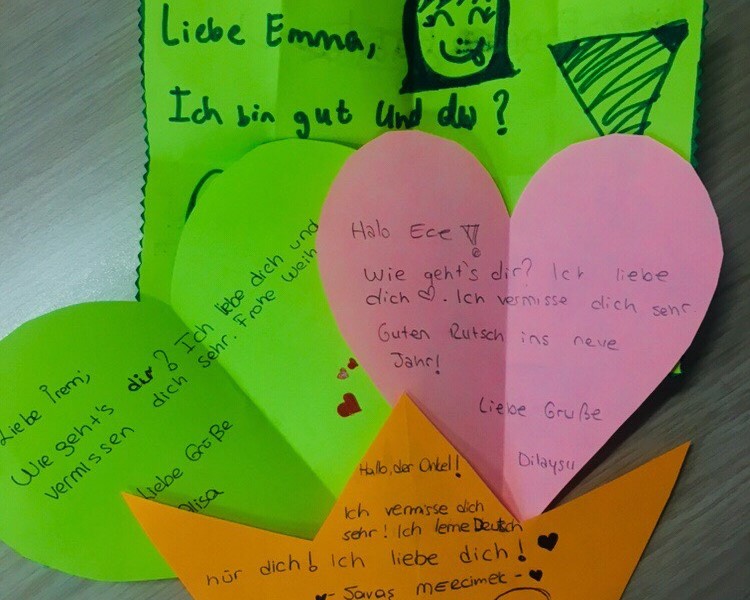 Liebe Emma,
Ich bin gut und du?
Liebe Irem,
Wie geht's dir? Ich liebe dich und
vermissen dich sehr. Frohe Weih
Liebe Große
alisa
Halo Ece!
Wie geht's dir? Ich liebe
dich. Ich vermisse dich sehr.
Guten Rutsch ins neue
Jahr!
Liebe Gruße
Dilaysu
Hallo, der Onkel!
Ich vermisse dich
sehr! Ich lerne Deutsch
nür dich! Ich liebe dich!
- Savaş MERCIMEK -